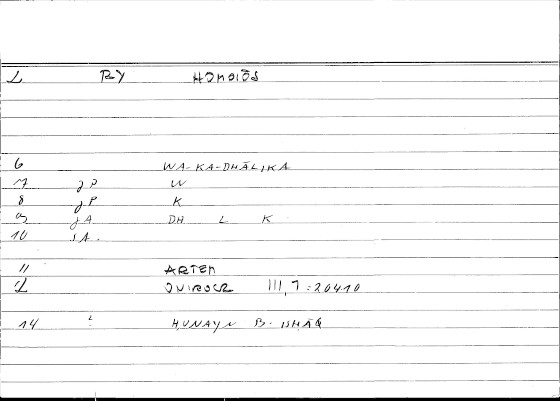 1 RY HOMOIŌS
6 WA-KA-DHĀLIKA
7 JP W
8 JP K
9 JA DH L K
10 JA.
11 ARTEM
ONIROCR III,7:20410
14 HUNAYN B. ISHĀQ